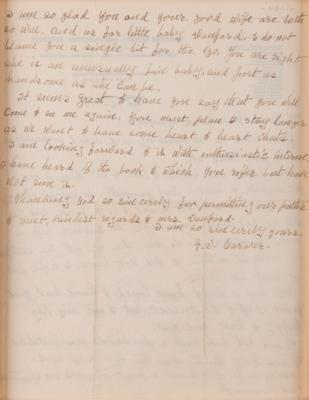 I am so glad you and your good wife are both
so well. And as for little baby Vanford. I do not
blame you a single bit for the Ego. You are right
she is an unusually fine baby, and just as
handsome as she can be.
It seems great to have you say that you will
come to see me again. You must plan to stay longer
as we want to have some heart to heart chats.
I am looking forward to it with enthusiastic interest
I have heard of the book to which you refer but have
not seen it.
Thanking God so sincerely for permitting our paths
to meet, kindest regards to Mrs. Vanford.
I am so sincerely yours.
G.W. Carver.